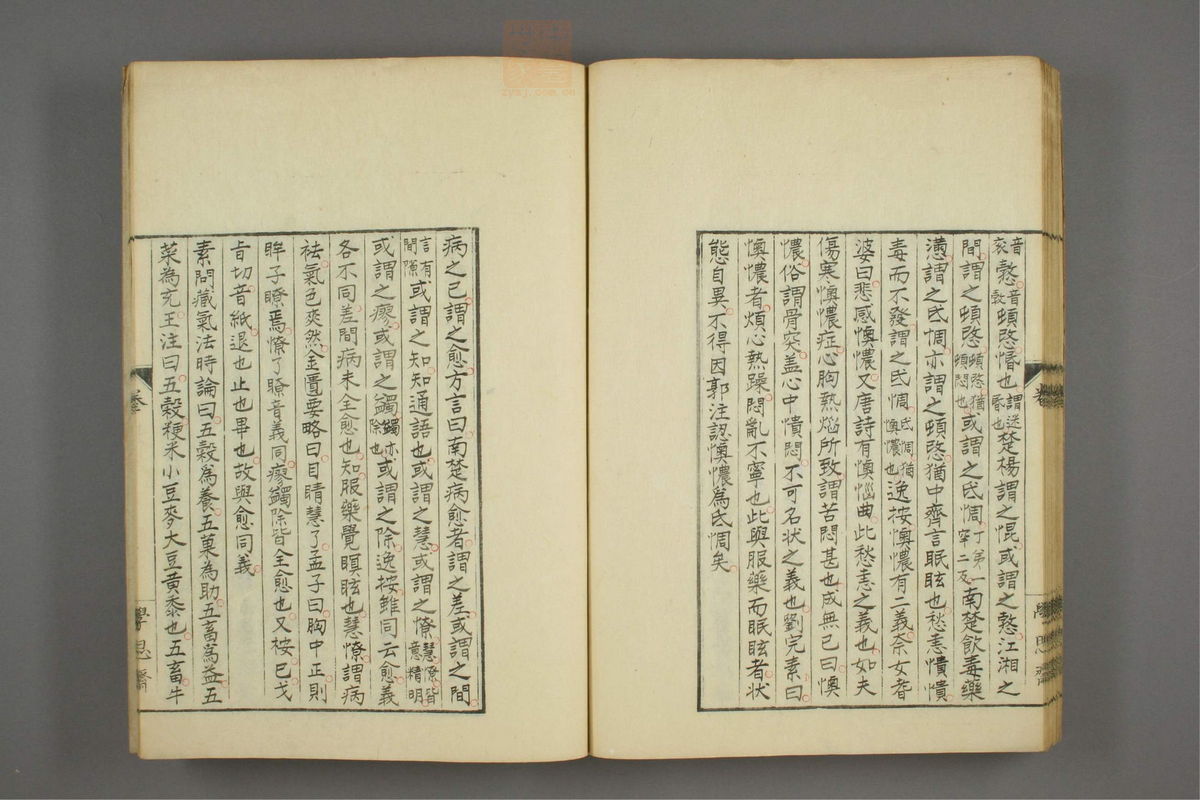 音妄愸音教頓愍惽也謂迷昏也楚楊謂之惃或謂之愸江湘之
間謂之頓愍頓愍猶頓悶也或謂之氐惆丁弟一宰二反南楚飲毒藥
懣謂之氐惆亦謂之頓愍猶中齊言眠眩也愁恚憒憒
毒而不發謂之氐惆氐惆猶懊憹也逸按懊憹有二義奈女耆
婆曰悲感懊憹又唐詩有懊惱曲此愁恚之義也如夫
傷寒懊憹症心胸熱惱所致謂苦悶甚也成無己曰懊
憹俗謂骨突蓋心中憒悶不可名状之義也劉完素曰
懊憹者煩心熱躁悶亂不寧也此與服藥而眠眩者状
態自異不得因郭注認懊憹為氐惆矣
病之已謂之愈方言曰南楚病愈者謂之差或謂之間
言有間隙或謂之知知通語也或謂之慧或謂之憭慧憭皆意精明
或謂之瘳或謂之蠲蠲亦除也或謂之除逸按雖同云愈義
各不同差間病未全愈也知服藥覺瞑眩也慧憭謂病
祛氣色爽然金匱要略曰目睛慧了孟子曰胸中正則
眸子瞭焉憭了瞭音義同瘳蠲除皆全愈也又桉已戈
旨切音紙退也止也畢也故與愈同義
素問藏氣法時論曰五穀爲養五菓為助五畜爲益五
菜為充王注曰五穀粳米小豆麥大豆黄黍也五畜牛
學思齋
zysj.com.cn